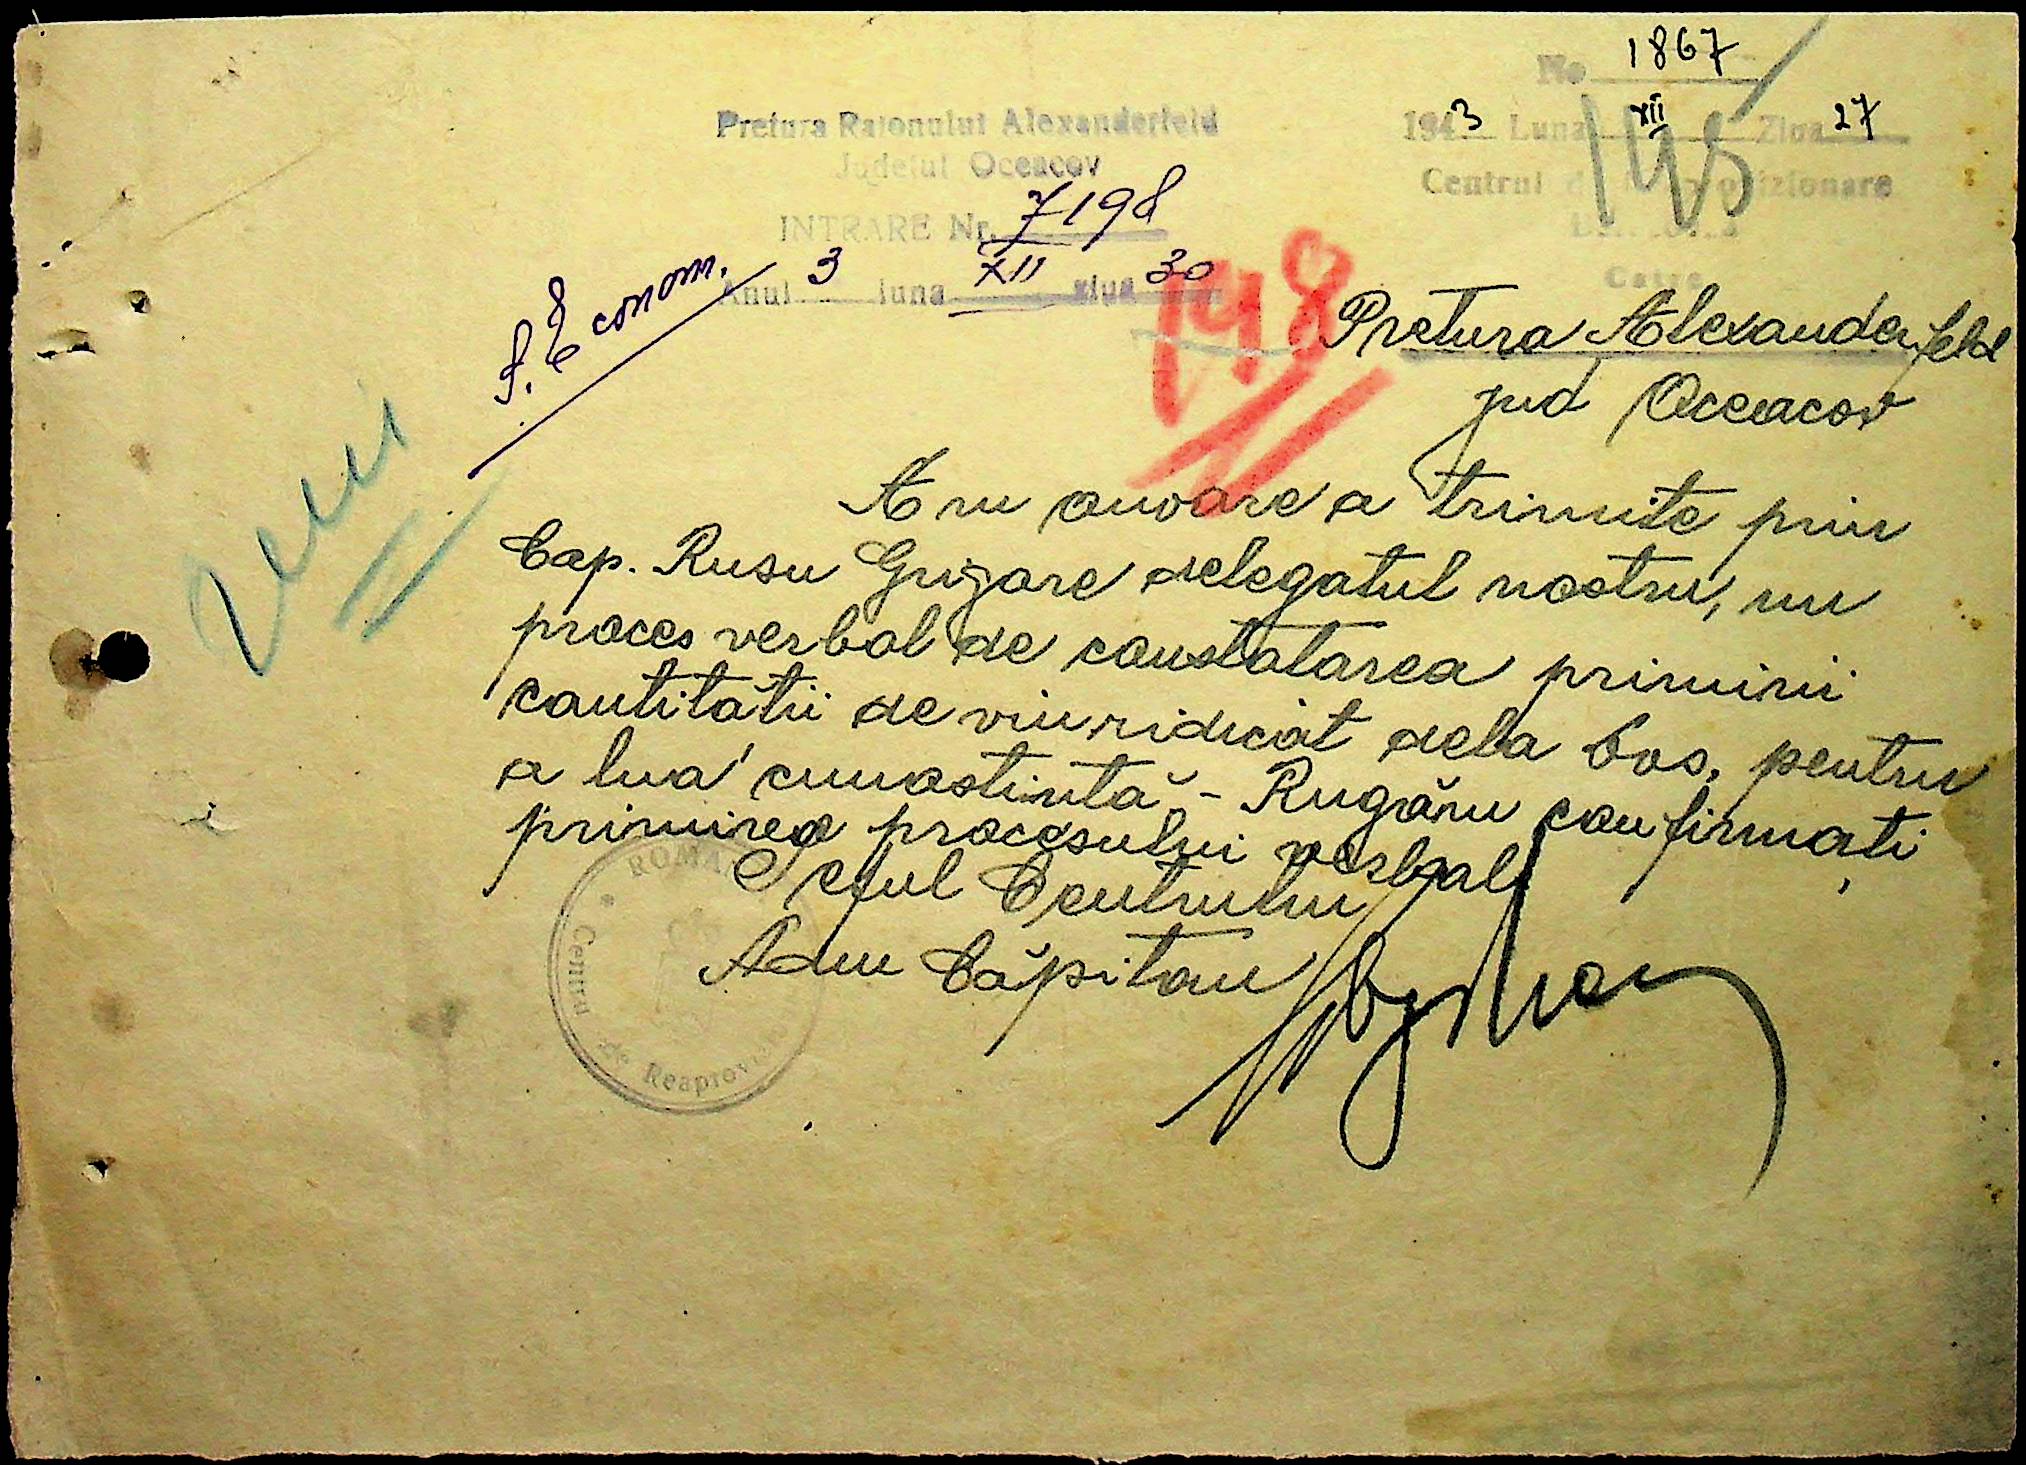 No 1867
1943 Luna XII Ziua 27
Centrul de Reaprovizionare
145
Pretura Raionului Alexanderfeld
Judetul Oceacov
INTRARE Nr. 7198
Anul 3 luna XII ziua 30
S. Econom.
198
Pretura Alexanderfeld
jud Oceacov
Am onoare a trimite prin
Cap. Rusu Grigore delegatul nostru, un
proces verbal de constatarea primirii
cantitătii de vin ridicat dela Dvs. pentru
a lua cunostintă - Rugăm confirmați
primirea procesului verbal
Seful Centrului
Adm Căpitan
ROMA
Centru de Reaprov